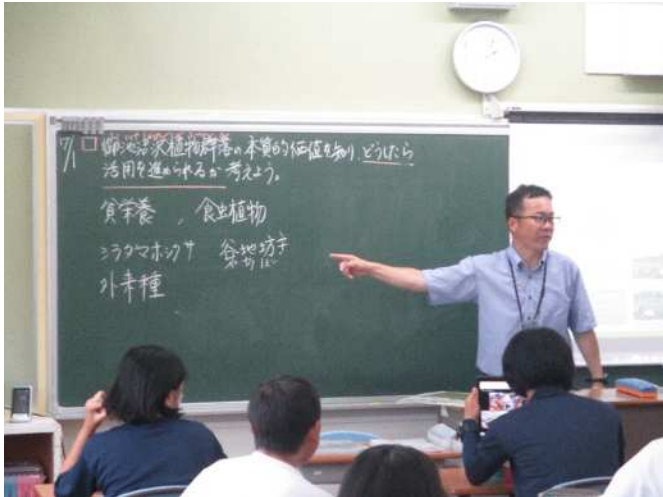 7/1 □ 御池沼沢植物群落の本質的価値を知り、どうしたら
活用を進められるか考えよう。
貧栄養 、 食虫植物
シラタマホシクサ 谷地坊主
やちぼうず
外来種